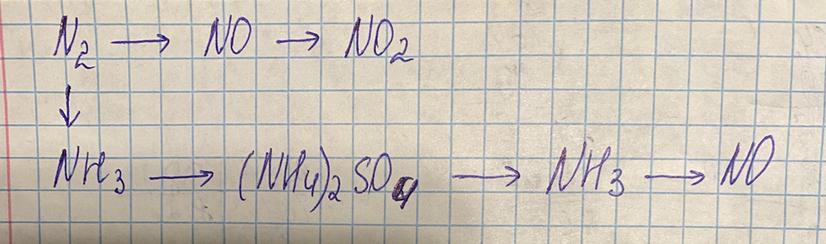 N₂ → NO → NO₂
↓
NH₃ → (NH₄)₂SO₄ → NH₃ → NO